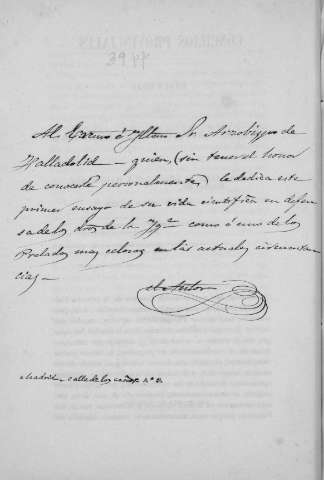 3947
Al Excmo é Yllmo Sr. Arzobispo de
Valladolid — quien, (sin tener el honor
de conocerle personalmente,) le dedica este
primer ensayo de su vida científica en defen
sa de los dros de la Ygª como á uno de los
Prelados mas celosos en las actuales circunstan
cias —
El Autor
Madrid — calle de los Caños nº